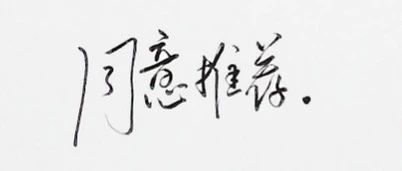 同意推荐.